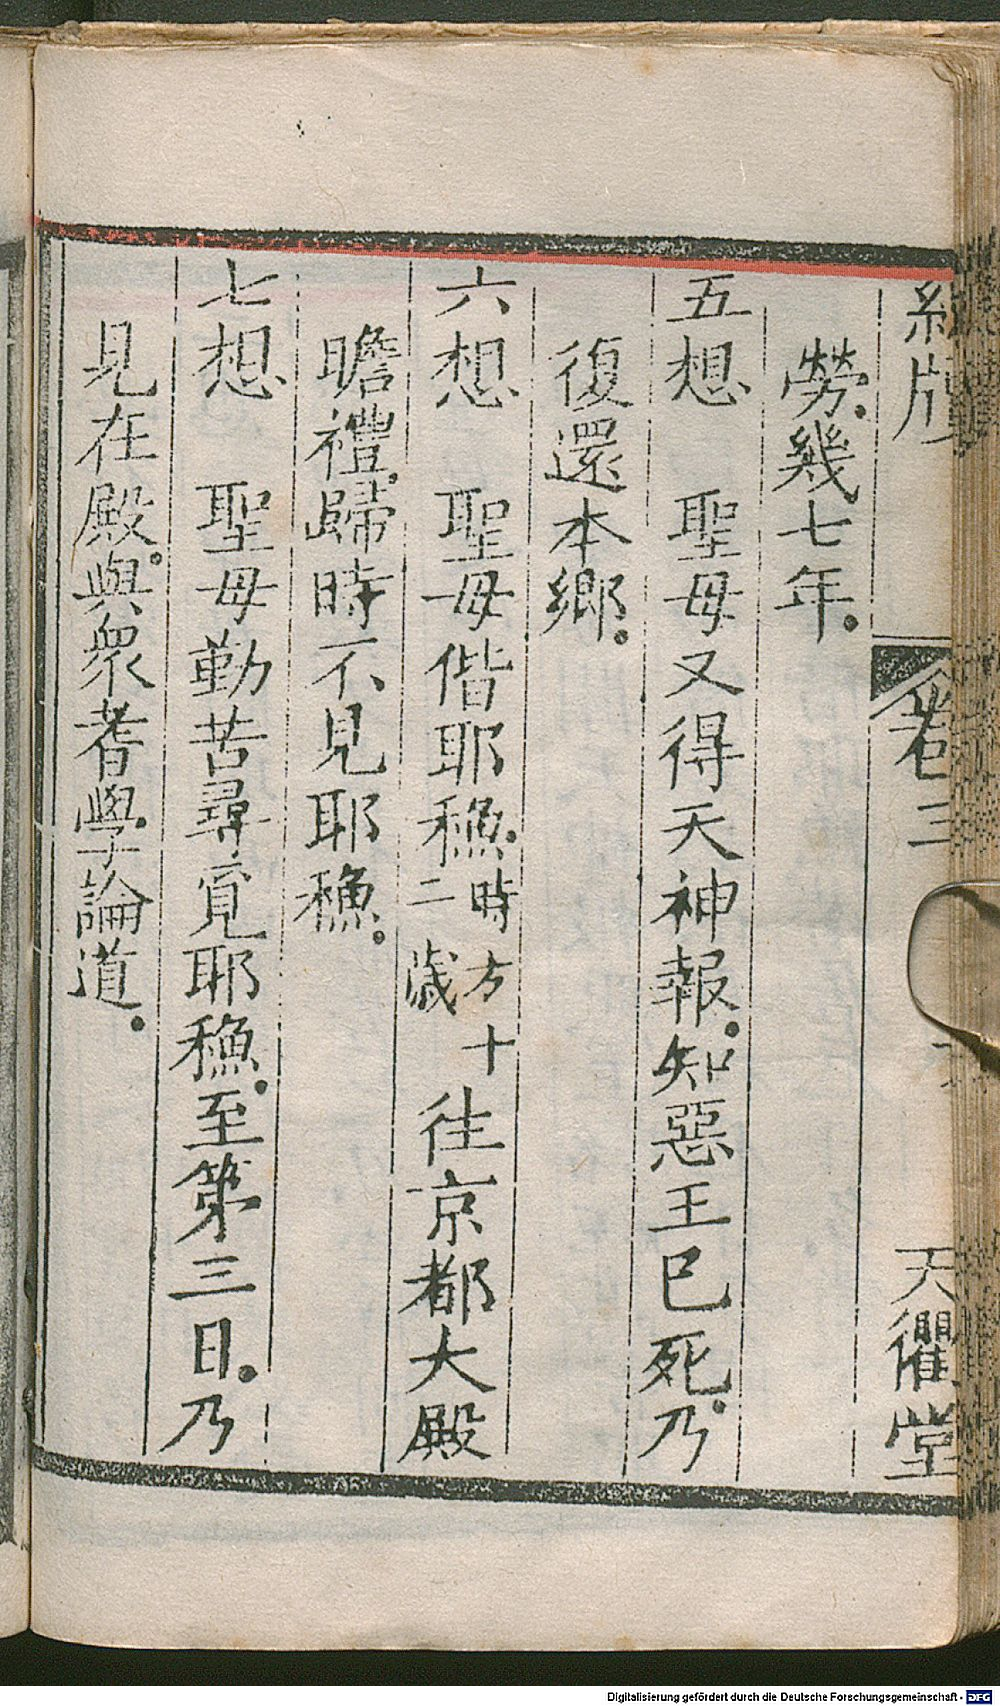 卷三 天衢堂
勞。幾七年。
五想 聖母又得天神報。知惡王已死。乃
復還本鄉。
六想 聖母偕耶穌。時方十二歲往京都大殿
瞻禮。歸時不見耶穌。
七想 聖母勤苦尋覓耶穌。至第三日。乃
見在殿。與衆耆學論道。
Digitalisierung gefördert durch die Deutsche Forschungsgemeinschaft - DFG